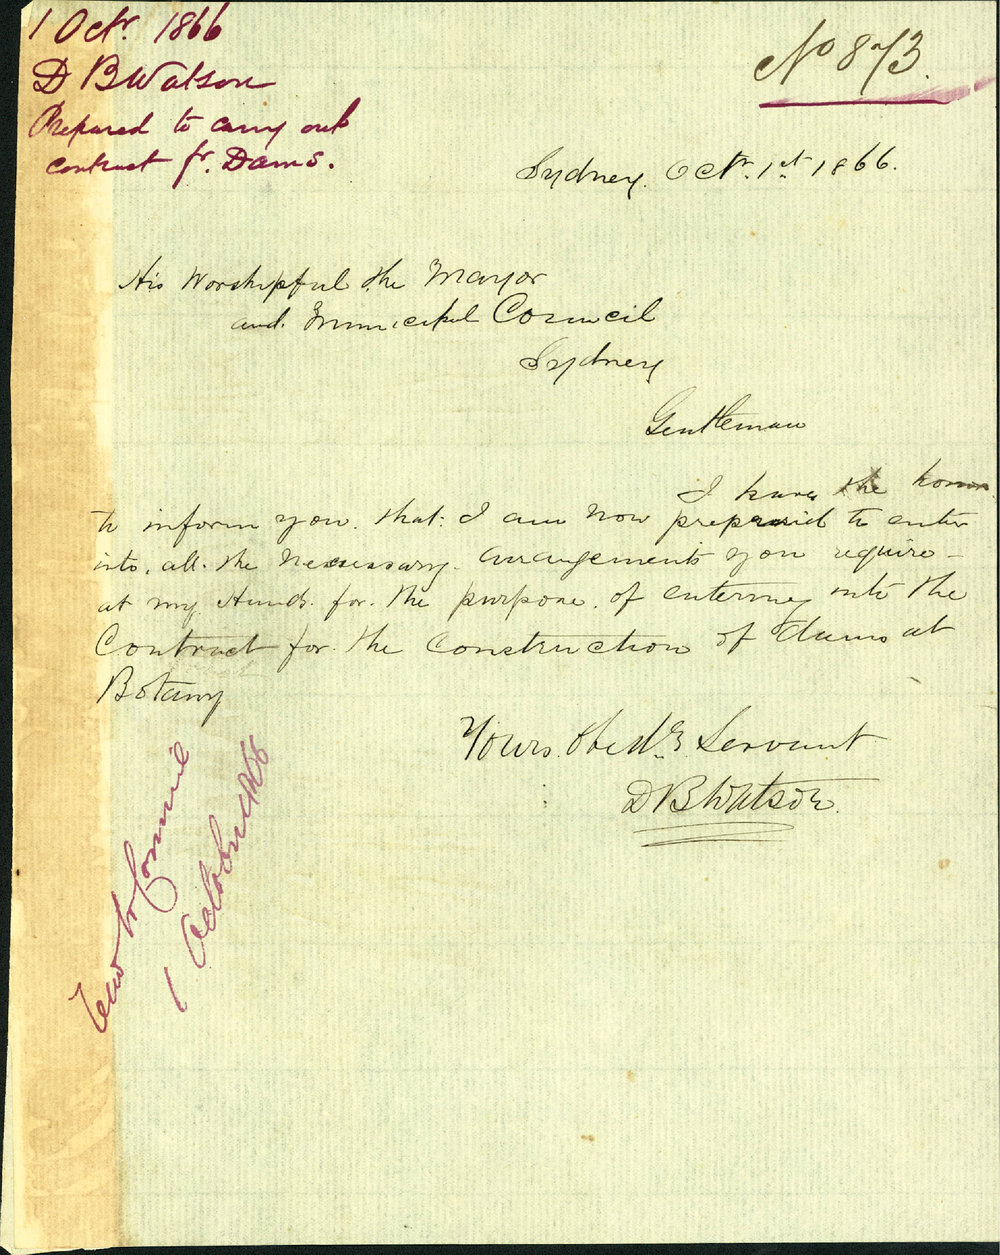 1 Octr. 1866
D B Watson
Prepared to carry out
contract fr. Dams.
No 873.
Sydney. Octr. 1st 1866.
His Worshipful the Mayor
and. Municipal Council
Sydney
Gentleman
I have the honor
to inform you. that. I am now prepared to enter
into. all. the Necessary. arrangements you require -
at my Hands. for. the purpose. of entering into the
Contract for. the Construction of dams at
Botany
Yours. Obedt. Servant
D B Watson.
Council
1 October /66